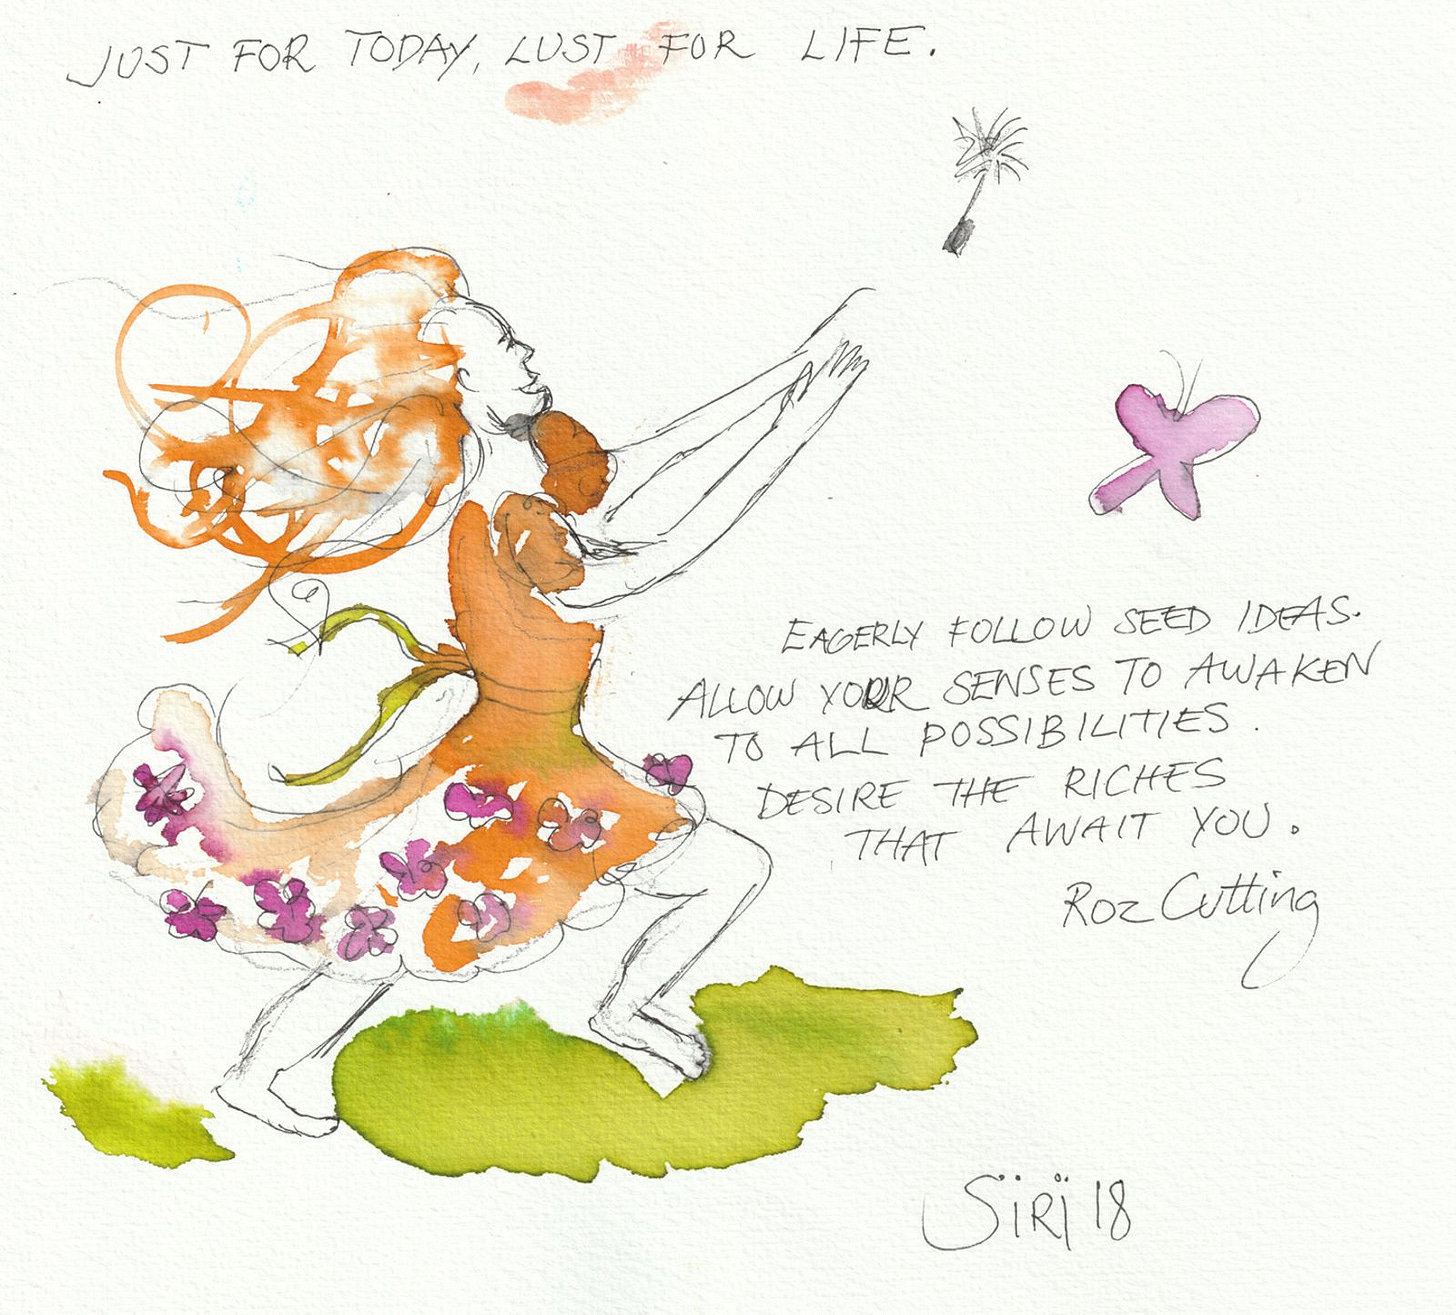 JUST FOR TODAY, LUST FOR LIFE.
EAGERLY FOLLOW SEED IDEAS.
ALLOW YOUR SENSES TO AWAKEN
TO ALL POSSIBILITIES.
DESIRE THE RICHES
THAT AWAIT YOU.
Roz Cutting
SiRi 18